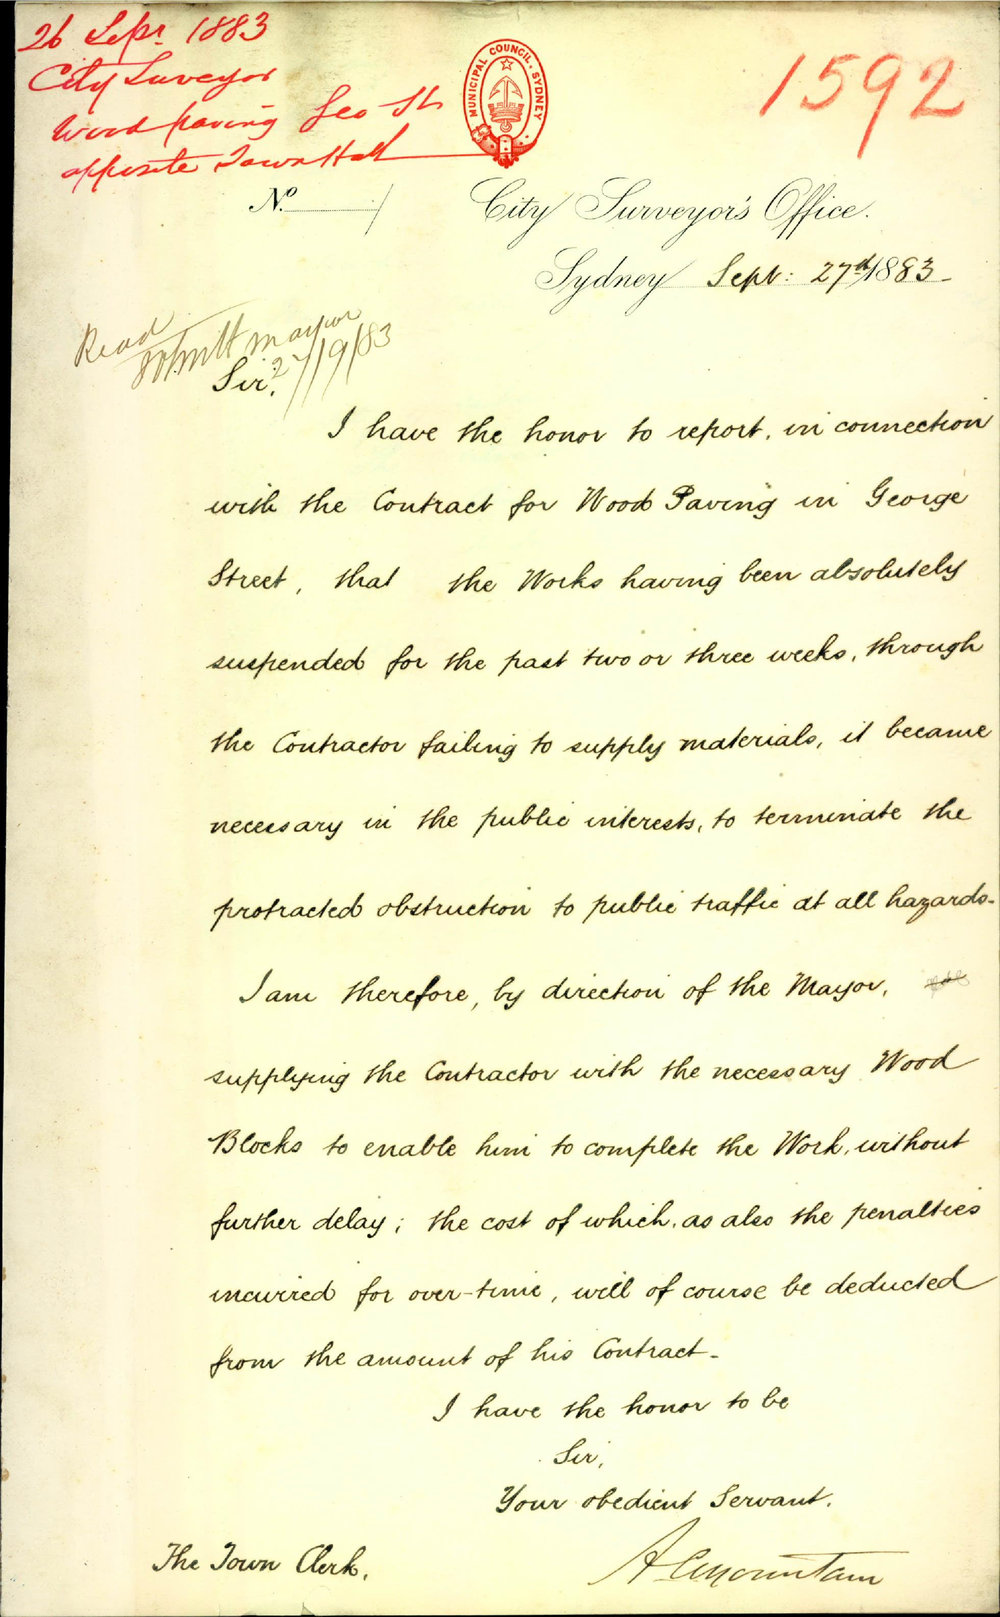 26 Sepr. 1883
City Surveyor
Wood paving Geo St
opposite Town Hall
MUNICIPAL COUNCIL, SYDNEY
1592
No.
City Surveyor's Office.
Sydney Sept: 27th 1883
Read
Mayor
27/9/83
Sir,
I have the honor to report, in connection
with the Contract for Wood Paving in George
Street, that the Works having been absolutely
suspended for the past two or three weeks, through
the Contractor failing to supply materials, it became
necessary in the public interests, to terminate the
protracted obstruction to public traffic at all hazards.
I am therefore, by direction of the Mayor,
supplying the Contractor with the necessary Wood
Blocks to enable him to complete the Work, without
further delay; the cost of which, as also the penalties
incurred for over-time, will of course be deducted
from the amount of his Contract.
I have the honor to be
Sir,
Your obedient Servant.
A C Mountain
The Town Clerk.